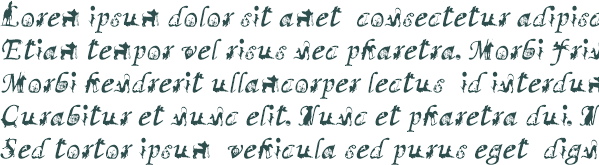 Lorem ipsum dolor sit amet consectetur adipisc
Etiam tempor vel risus nec pharetra. Morbi fris
Morbi hendrerit ullamcorper lectus id interdu
Curabitur et nunc elit. Nunc et pharetra dui. N
Sed tortor ipsum vehicula sed purus eget dign